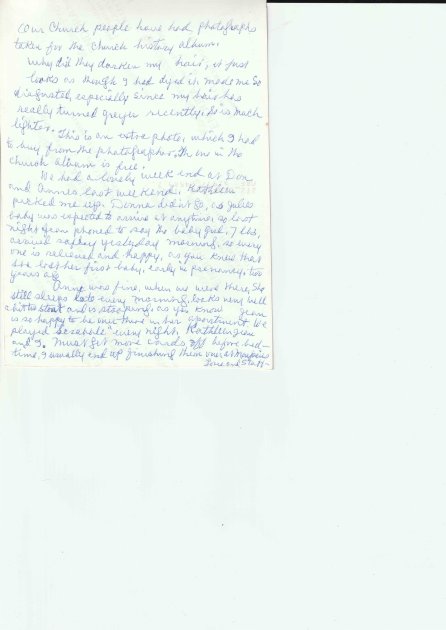 Our Church people have had photographs
taken for the Church history album.
Why did they darken my hair, it just
looks as though I had dyed it, made me so
indignant, especially since my hair has
really turned greyer recently, & is much
lighter.
This is an extra photo, which I had
to buy from the photographer, the one in the
church album is free.
We had a lovely week end at Don
and Annes, last weekend. Kathleen
picked me up. Donna didn't go, as Julies
baby was expected to arrive at anytime, so last
night Jean phoned to say the baby girl, 7 lbs,
arrived safely yesterday morning, so every
one is relieved and happy, as you know that
she lost her first baby, early in pregnancy, two
years ago.
Anne was fine, when we were there, she
still sleeps late every morning, looks very well
a bit stout and is stooping, as you know Jean
is so happy to be over there in her apartment. We
played "Scrabble" every night, Kathleen, Jean
and I. Must get more cards off before bed-
time, I usually end up finishing them
Love and